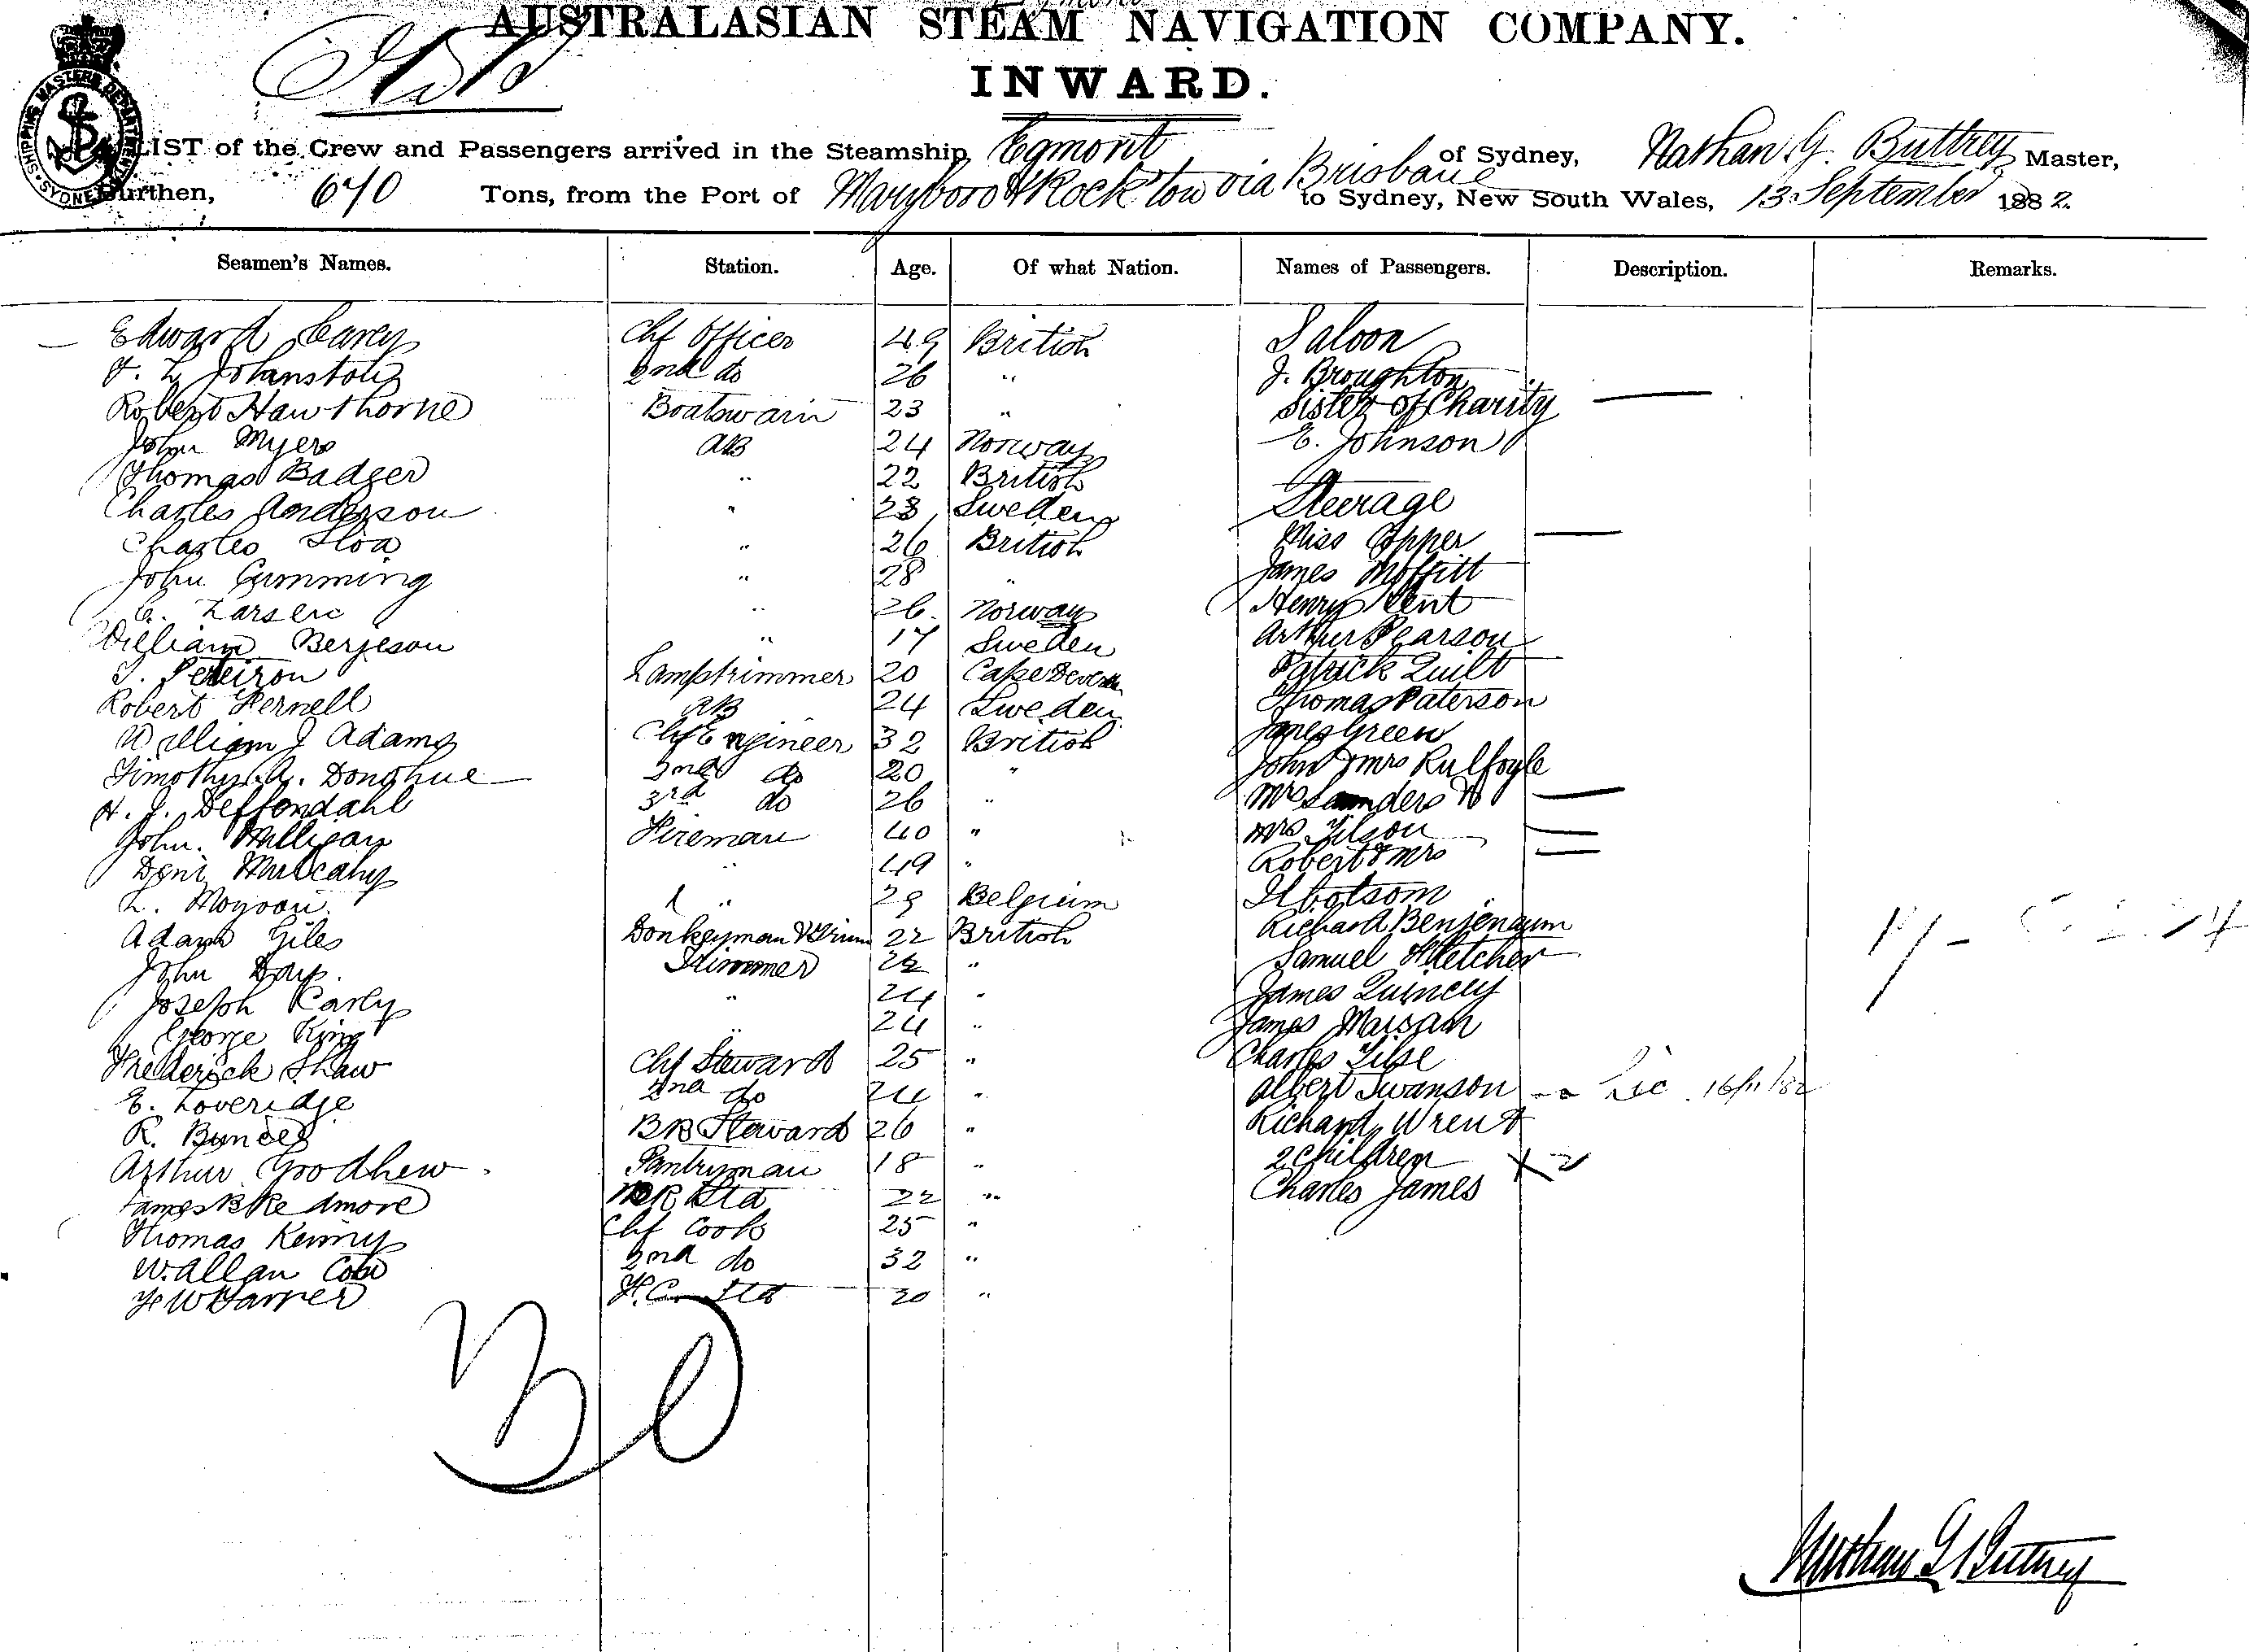 AUSTRALASIAN STEAM NAVIGATION COMPANY.
INWARD.
SHIPPING MASTERS DEPARTMENT SYDNEY
LIST of the Crew and Passengers arrived in the Steamship Egmont of Sydney, Nathan G. Buttrey Master,
Burthen, 640 Tons, from the Port of Maryboro & Rockton via Brisbane to Sydney, New South Wales, 13 September 1882.
Seamen's Names. Station. Age. Of what Nation. Names of Passengers. Description. Remarks.
Edward Carey Chf Officer 49 British Saloon
2nd do 26 " J. Broughton
Robert Hawthorne Boatswain 23 " Sister of Charity
John Myers AB 24 Norway E. Johnson
Thomas Badger " 22 British
Charles Anderson " 23 Sweden Steerage
Charles " 26 British Miss
John Cumming " 28 " James Moffitt
Larsen " 26 Norway Henry Kent
William Berjeson " 17 Sweden Arthur Pearson
Lamptrimmer 20 Cape Patrick Quilt
Robert AB 24 Sweden Thomas Paterson
William J Adams Chf Engineer 32 British James Green
Timothy Donghue 2nd do 20 " John & Mrs
H. J. Deffendahl 3rd do 26 " Mrs Saunders
John Milligan Fireman 40 " Mrs
Mulcahy " 49 " Robert & Mrs
L. " 29 Belgium Ibbotsom
Adam Giles Donkeyman 22 British Richard
John Trimmer " Samuel Fletcher
Joseph " 24 " James Quincey
George King " 24 " James
Frederick Shaw Chf Steward 25 " Charles
E. Loveridge 2nd do 24 " Albert Swanson Dec 16/11/82
R. BR Steward 26 " Richard
Arthur Goodhew Pantryman 18 " 2 Children X 2
James B Redmore Std 22 " Charles James
Thomas Kenny Chf Cook 25 "
W. Allan 2nd do 32 "
F.C. Std 20 "
30
Nathan G Buttrey